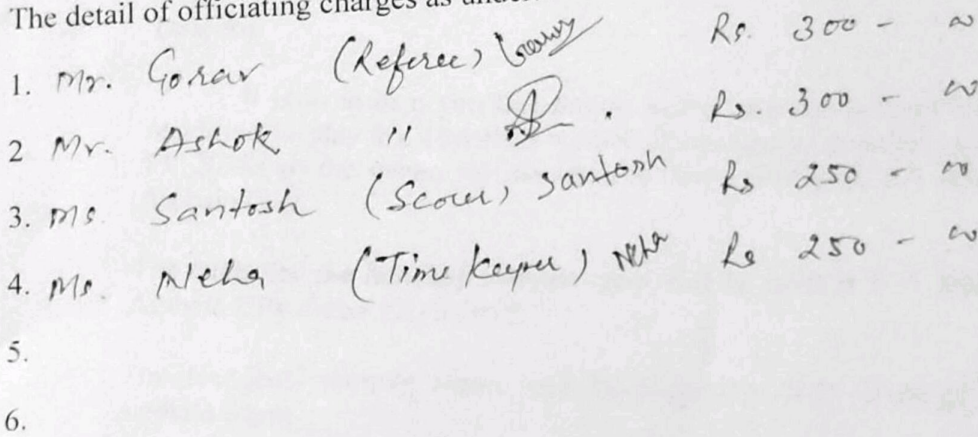 The detail of officiating charges as under
1. Mr. Gorav (Referee) Gourav Rs. 300 - 00
2 Mr. Ashok " Rs. 300 - 00
3. Ms. Santosh (Scorer) Santosh Rs 250 - 00
4. Ms. Neha (Time keeper) Neha Rs 250 - 00
5.
6.